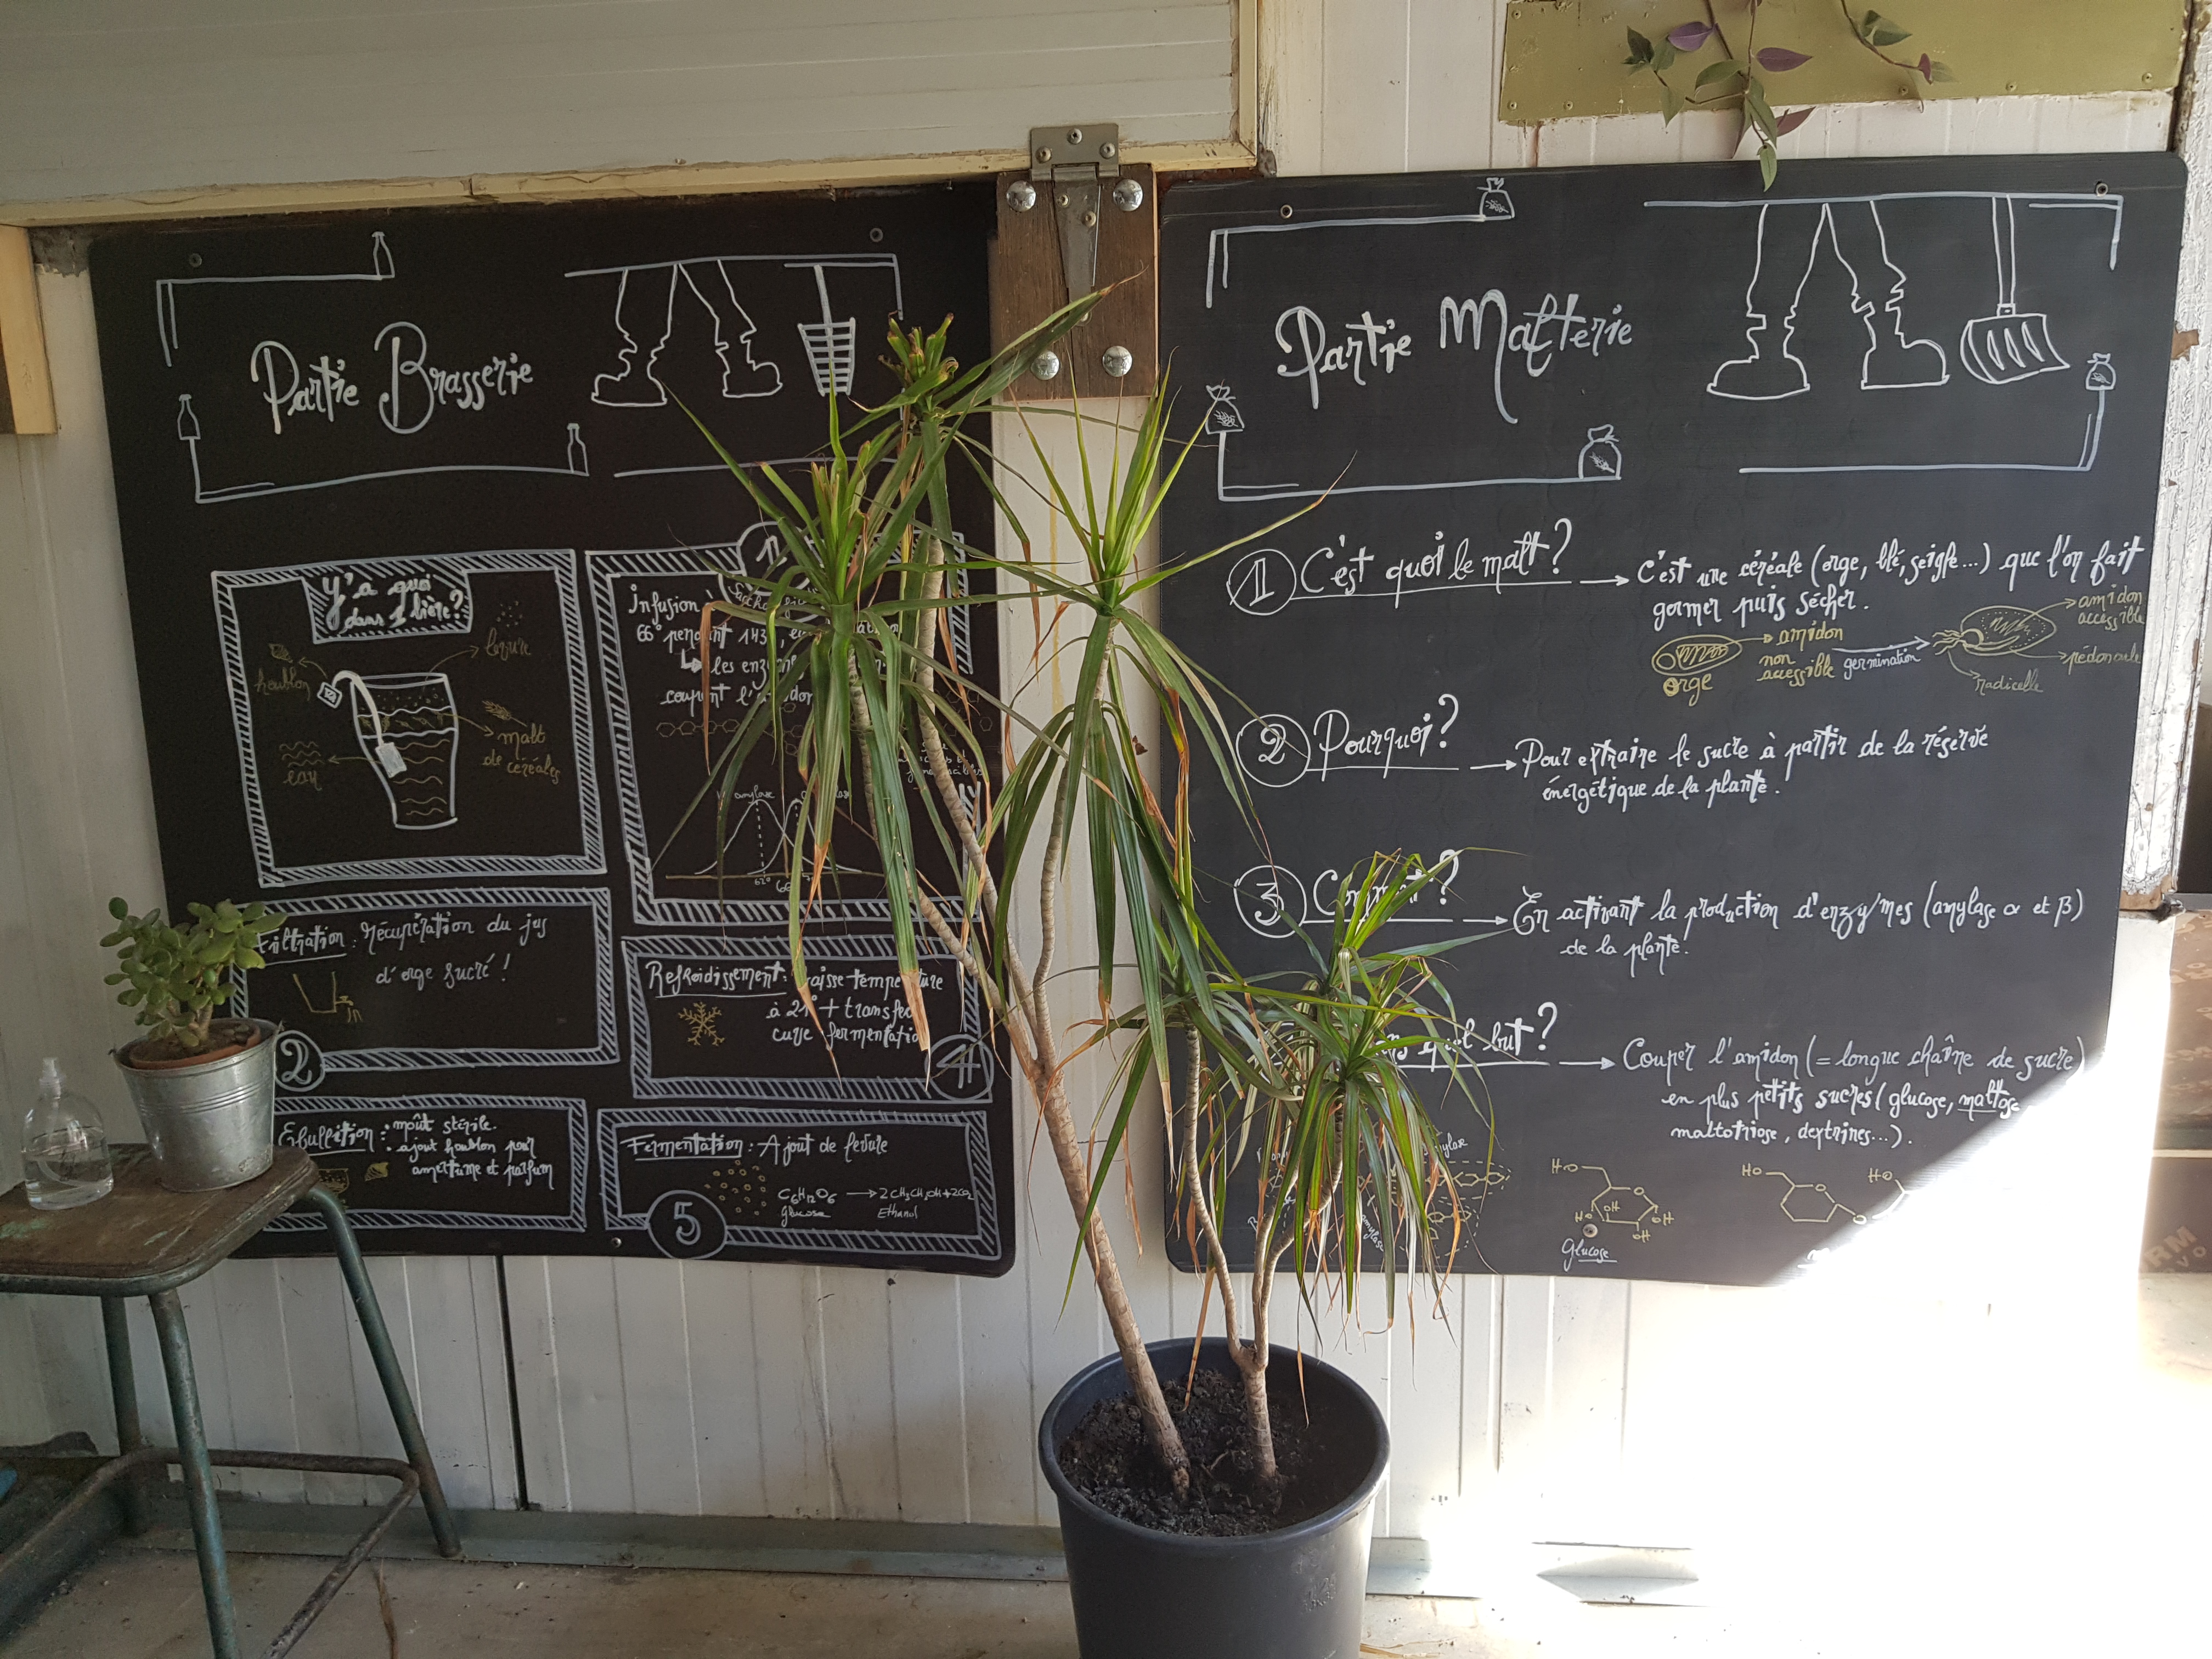 Partie Brasserie
Y'a quoi
dans 1 bière?
houblon
levure
malt
de céréales
eau
1
Infusion
66° pendant 1H3
les enzy
coupent l'amidon
amylase
62°
Filtration: récupération du jus
d'orge sucré!
2
Refroidissement: baisse température
à 21° + transfert
cuve fermentation
4
Ebullition: moût stérile.
ajout houblon pour
amertume et parfum
Fermentation: Ajout de levure
C6H12O6 → 2CH3CH2OH+2CO2
Glucose
Ethanol
5
Partie Malterie
1 C'est quoi le malt? → C'est une céréale (orge, blé, seigle...) que l'on fait
germer puis sécher.
orge
amidon
non
accessible
germination
amidon
accessible
pédoncule
radicelle
2 Pourquoi? → Pour extraire le sucre à partir de la réserve
énergétique de la plante.
3 Comment? → En activant la production d'enzymes (amylase α et β)
de la plante.
quel but? → Couper l'amidon (= longue chaîne de sucre)
en plus petits sucres (glucose, maltose
maltotriose, dextrines...).
amylase
HO
HO
OH
OH
OH
Glucose
HO
HO